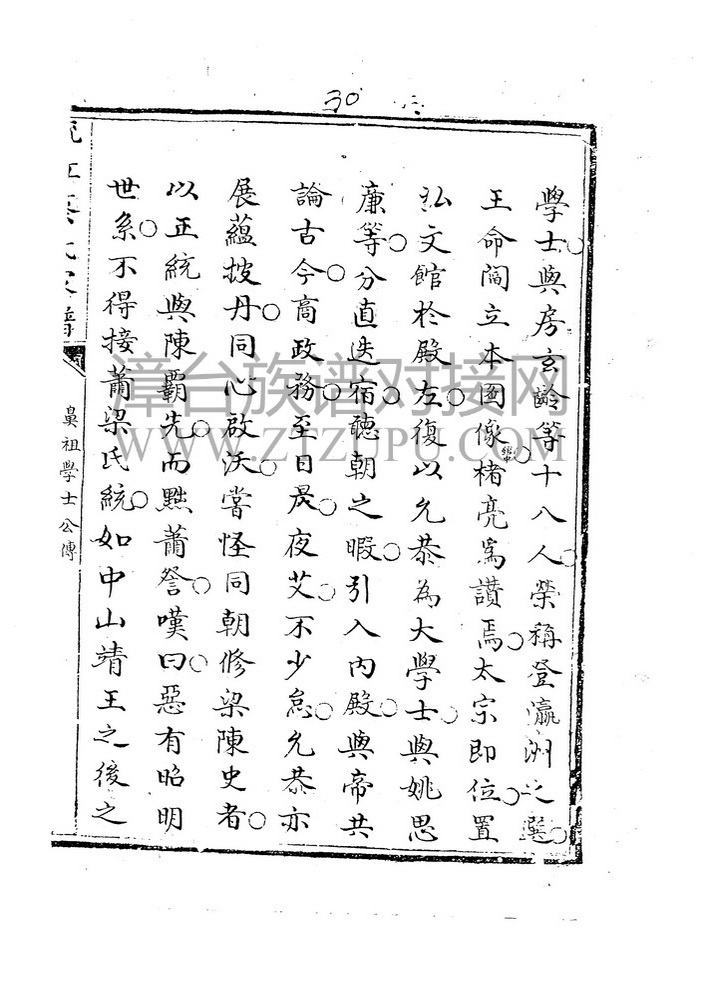 30
學士與房玄齡等十八人榮稱登瀛洲之選
王命閻立本圖像楮亮爲讚焉太宗即位置
弘文館於殿左復以允恭為大學士與姚思
廉等分直迭宿聽朝之暇引入內殿與帝共
論古今商政務至日昃夜艾不少怠允恭亦
展蘊披丹同心啟沃嘗怪同朝修梁陳史者
以正統與陳霸先而黜蕭詧嘆曰惡有昭明
世系不得接蕭梁氏統如中山靖王之後之
氏家譜
鼻祖學士公傳
漳台族谱对接网
WWW.ZTZUPU.COM